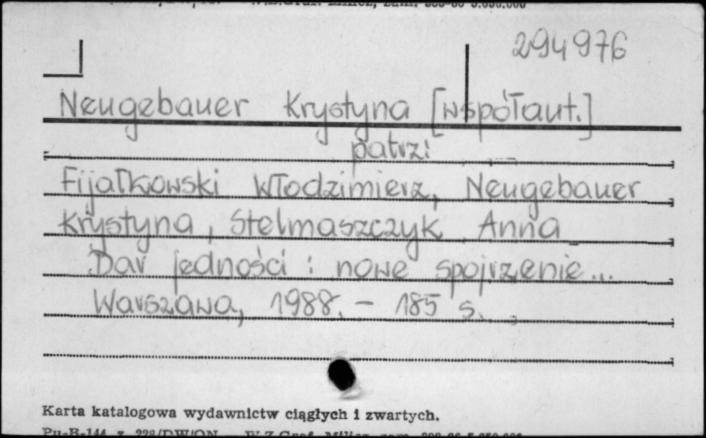 294976
Neugebauer Krystyna [współaut.]
patrz:
Fijałkowski Włodzimierz, Neugebauer
Krystyna, Stelmaszczyk Anna
Dar jedności : nowe spojrzenie...
Warszawa, 1988. – 185 s.
Karta katalogowa wydawnictw ciągłych i zwartych.